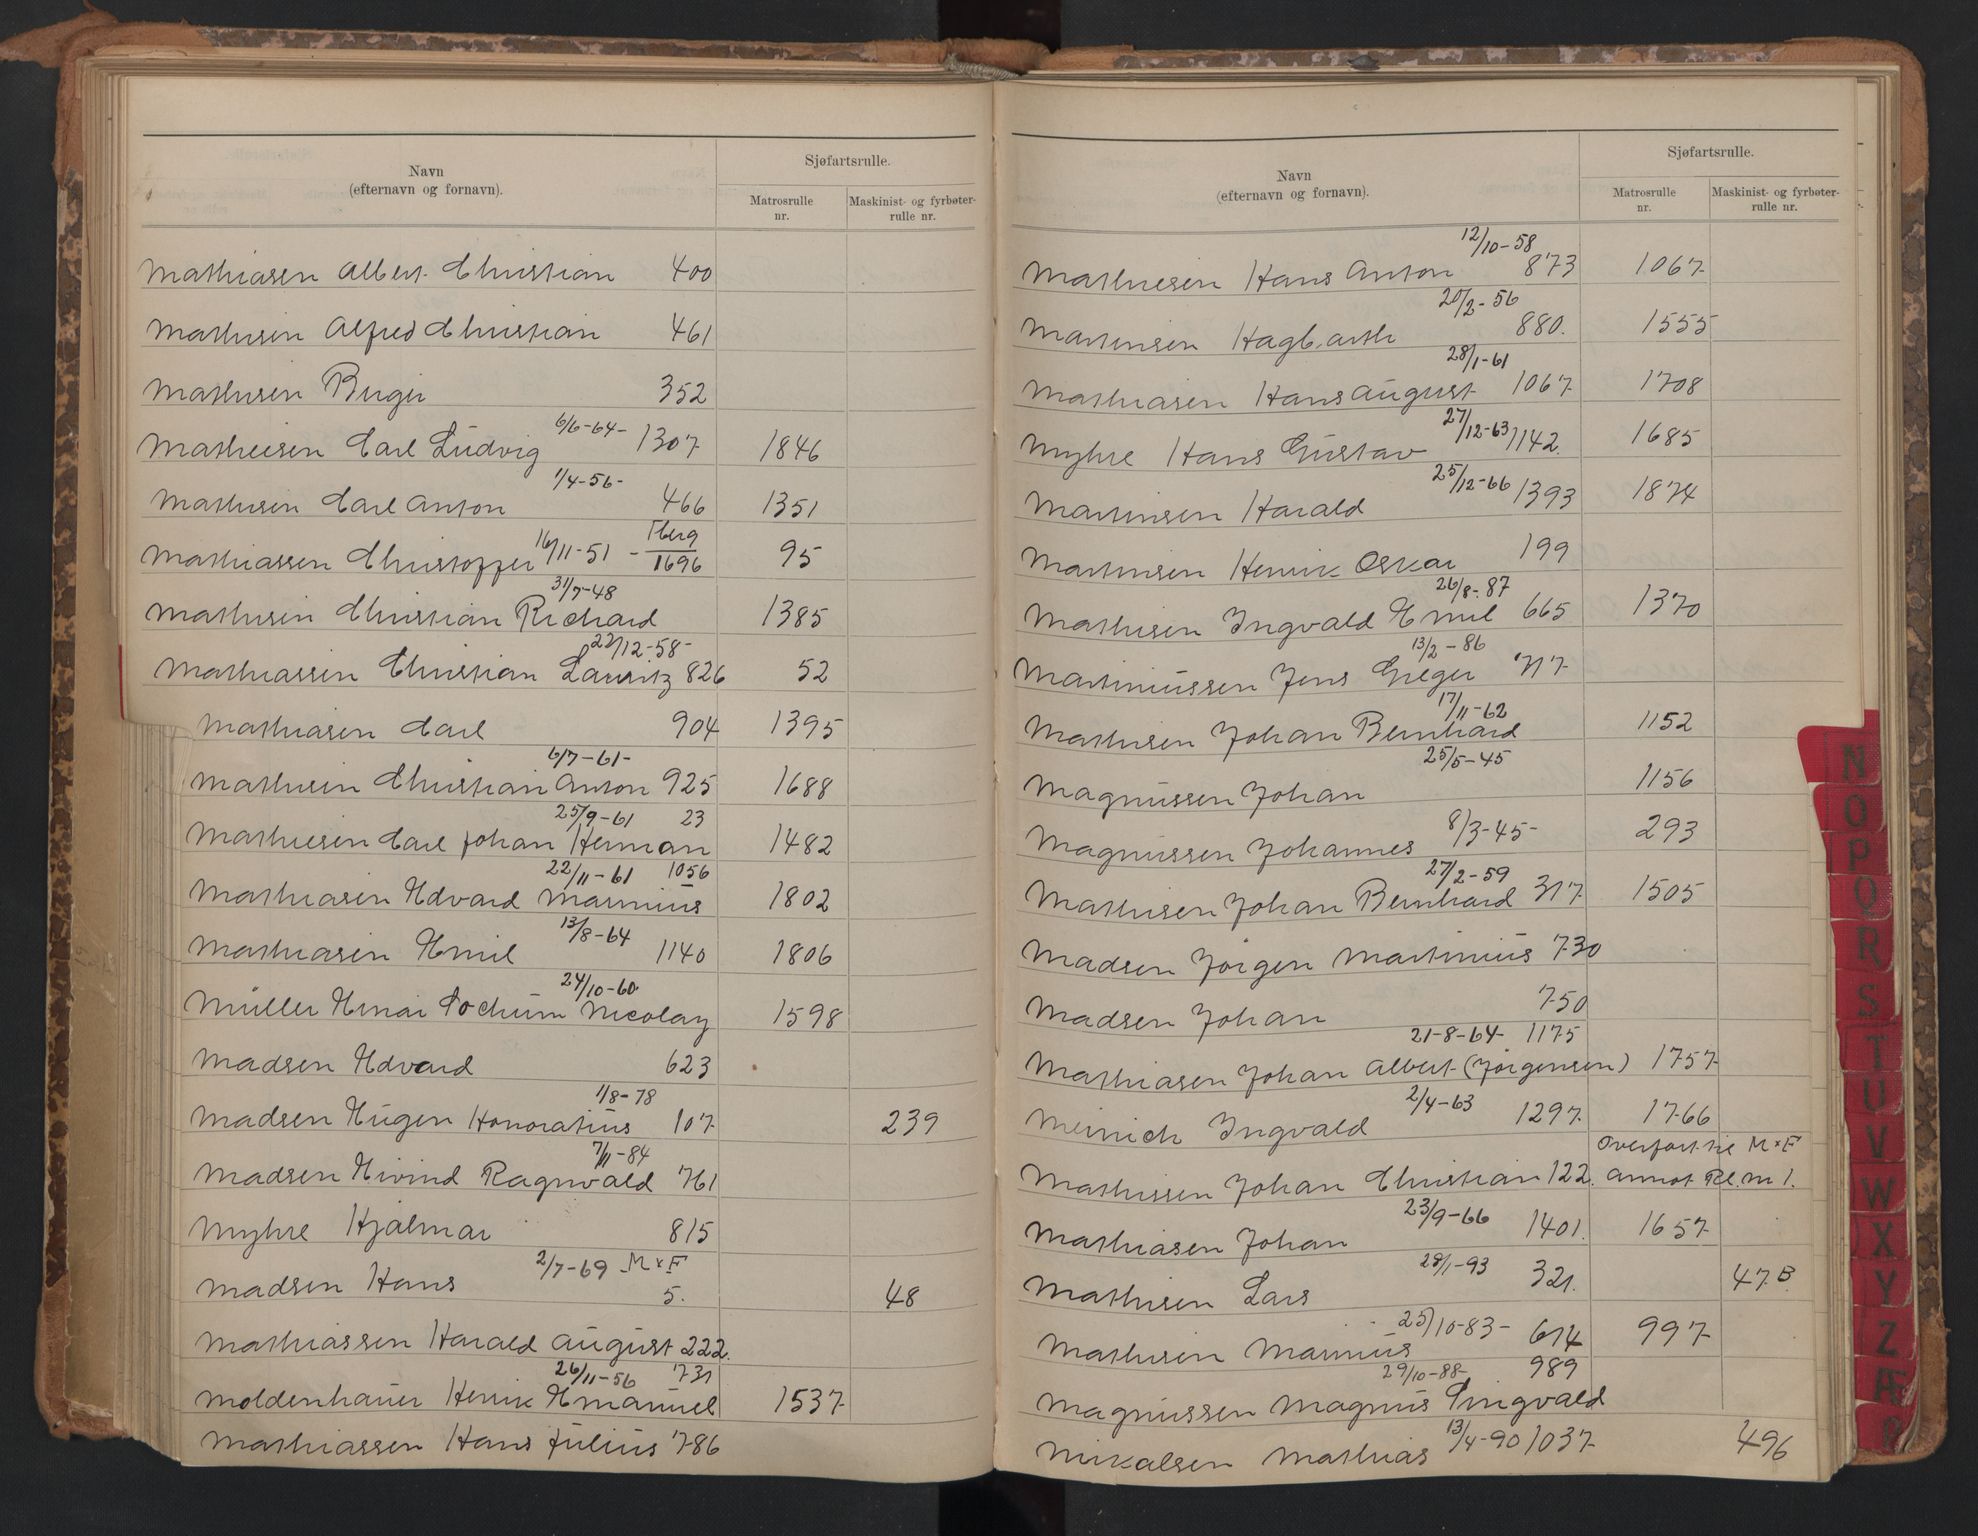 Navn
(efternavn og fornavn).
Sjøfartsrulle.
Matrosrulle
nr.
Maskinist- og fyrbøter-
rulle nr.
Mathiasen Albert Christian 400
Mathisen Alfred Christian 461
Mathisen Birger 352
Mathiesen Carl Ludvig 6/6-64- 1307 1846
Mathisen Carl Anton 1/4-56- 466 1351
Mathiassen Christoffer 16/11-51 - Tberg 1696 95
Mathisen Christian Richard 31/7-48 1385
Mathiassen Christian Lauritz 23/12-58- 826 52
Mathiasen Carl 904 1395
Mathisen Christian Anton 6/7-61- 925 1688
Mathiesen Carl Johan Herman 25/9-61 23 1482
Mathiasen Edvard Marinius 22/11-61 1056 1802
Mathiasen Emil 13/8-64 1140 1806
Müller Einar Jochum Nicolay 24/10-60 1598
Madsen Edvard 623
Madsen Eugen Honoratius 1/8-78 107 239
Madsen Eivind Ragnvald 7/11-84 761
Myhre Hjalmar 815
Madsen Hans 2/7-69 M x F 5. 48
Mathiassen Harald August 222.
Moldenhauer Henrik Emanuel 26/11-56 731 1537
Mathiassen Hans Julius 786
Navn
(efternavn og fornavn).
Sjøfartsrulle.
Matrosrulle
nr.
Maskinist- og fyrbøter-
rulle nr.
Mathiesen Hans Anton 12/10-58 873 1067
Martinsen Hagbarth 20/2-56 880. 1555
Mathiasen Hans August 28/1-61 1067 1708
Myhre Hans Gustav 27/12-63 1142. 1685
Martinsen Harald 25/12-66 1393 1874
Martinsen Henrik Oskar 199
Mathisen Ingvald Emil 26/8-87 665 1370
Martiniussen Jens Greger 13/2-86 717
Mathisen Johan Bernhard 17/11-62 1152
Magnussen Johan 25/5-45 1156
Magnussen Johannes 8/3-45- 293
Mathisen Johan Bernhard 27/2-59 317 1505
Madsen Jørgen Martinius 730
Madsen Johan 750
Mathiasen Johan Albert (Jørgensen) 21-8-64- 1175 1757
Meinich Ingvald 2/4-63 1297 1766
Mathissen Johan Christian 122. Overført til M x F annot Rl. m 1.
Mathiasen Johan 23/9-66 1401. 1657
Mathisen Lars 28/1-93 321. 47 B.
Mathisen Marinius 25/10-83- 614 997
Magnussen Magnus Singvald 29/10-88- 989
Mikalsen Mathias 13/4-90 1037 496
N
O
P
Q
R
S
T
U
V
W
X
Y
Z
Æ